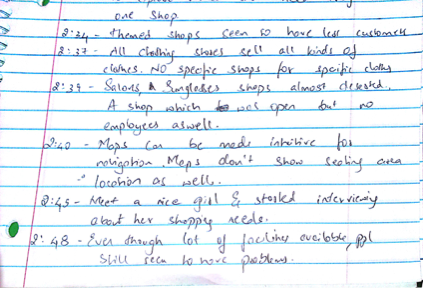 one shop
2:34 - themed shops seen to have less customers
2:37 - All clothing stores sell all kinds of
clothes. NO specific shops for specific cloths
2:39 - Salons & Sunglasses shops almost deserted.
A shop which was open but no
employees aswell.
2:40 - Maps can be made intuitive for
navigation. Maps don't show seating area
location as well.
2:45 - Meet a nice girl & started interviewing
about her shopping needs.
2:48 - Even though lot of facilities available, ppl
still seem to have problems.